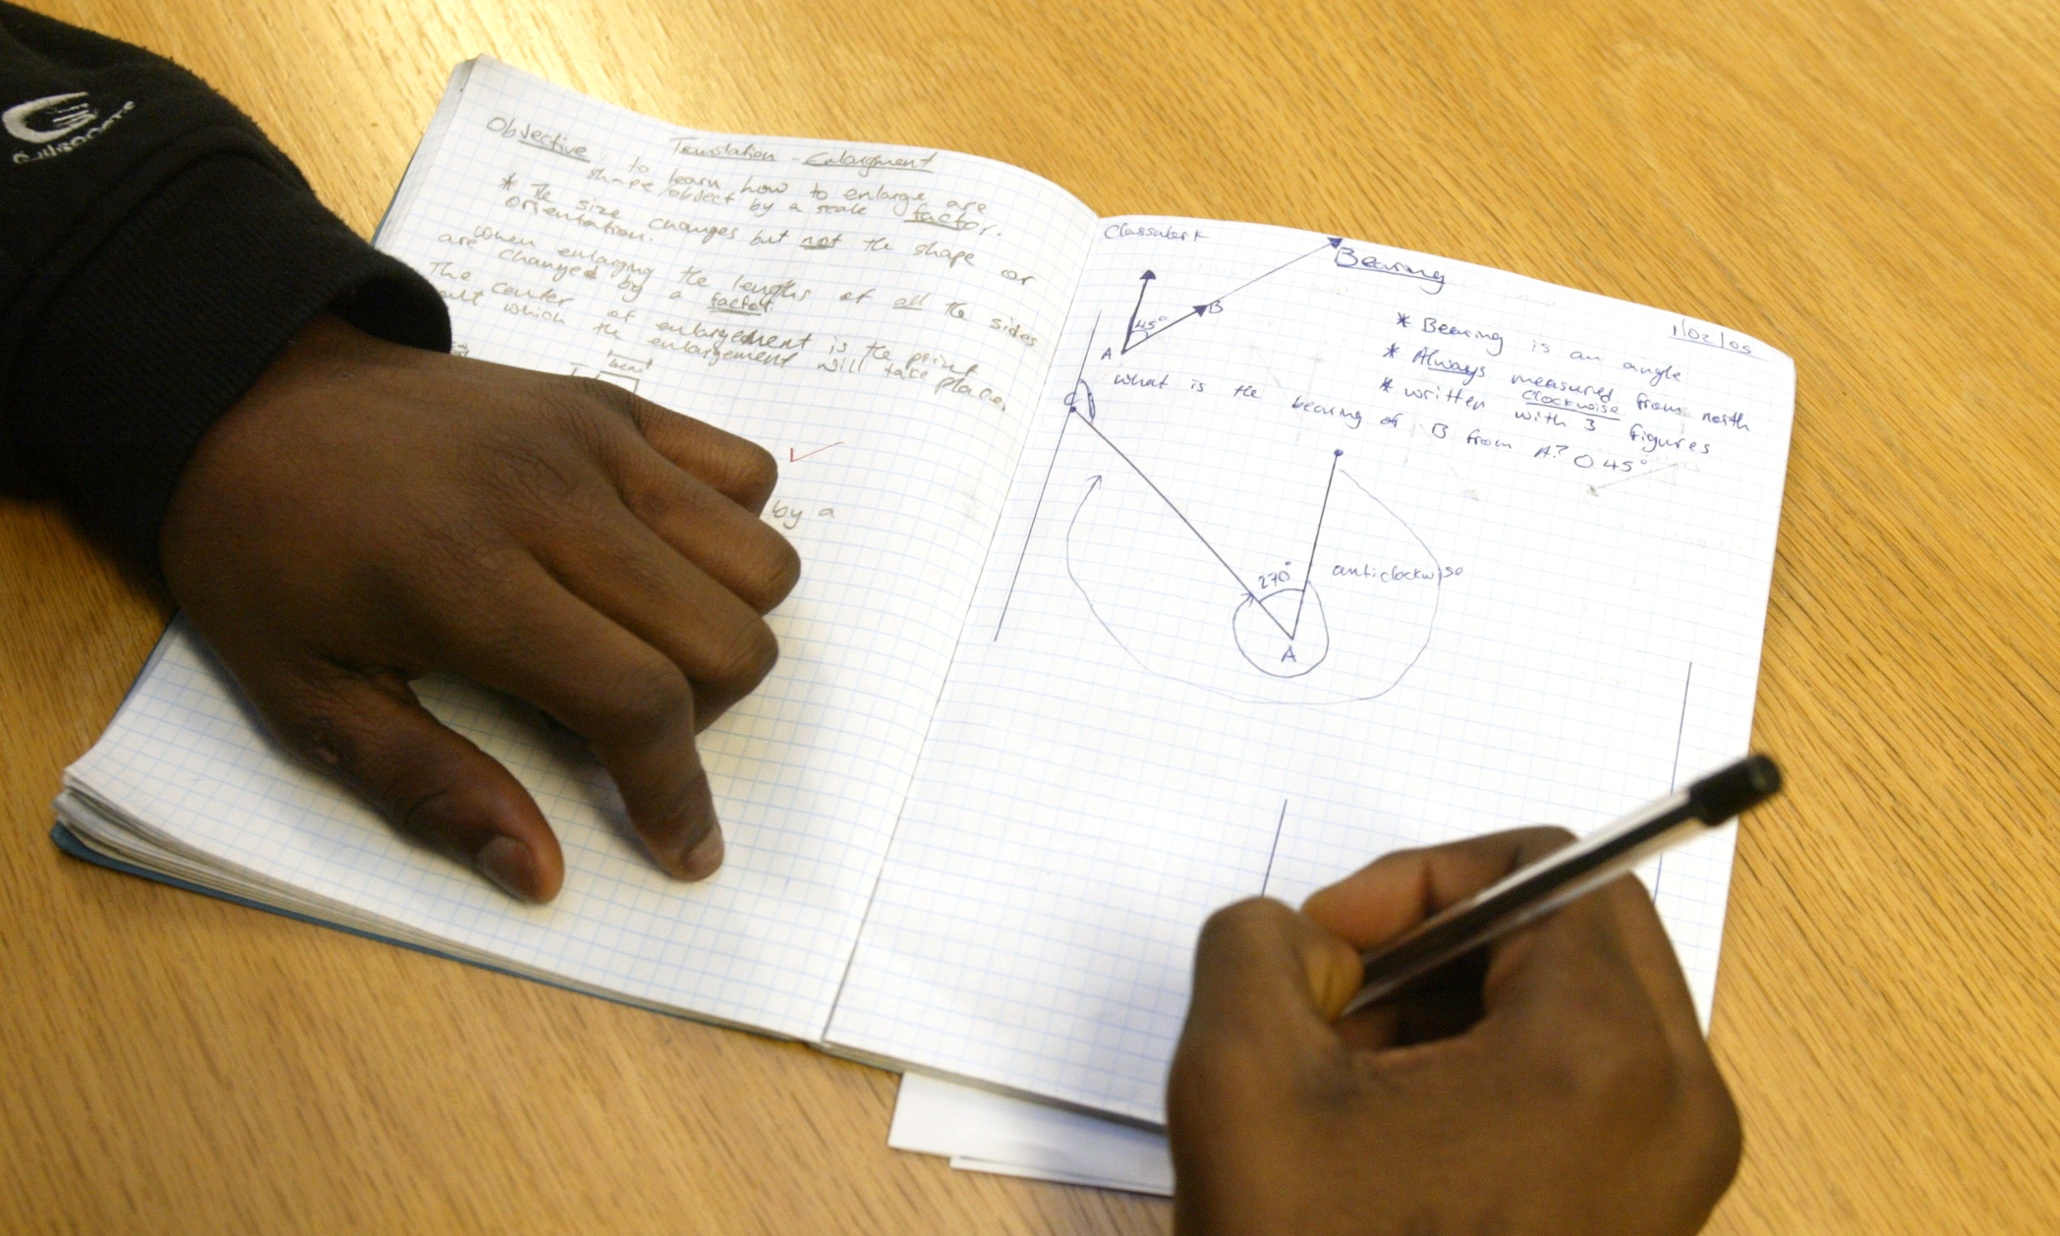 Objective Translation - Enlargment
to learn how to enlarge are
shape/object by a scale factor.
* The size changes but not the shape or
orientation.
when enlarging the lengths of all the sides
are changed by a factor.
The center of enlargement is the point
out which the enlargement will take place.
by a
Classwork
Bearing
1/02/05
45°
A
B
* Bearing is an angle
* Always measured from north
clockwise
* written with 3 figures
what is the bearing of B from A? 045°
C
270°
anticlockwise
A